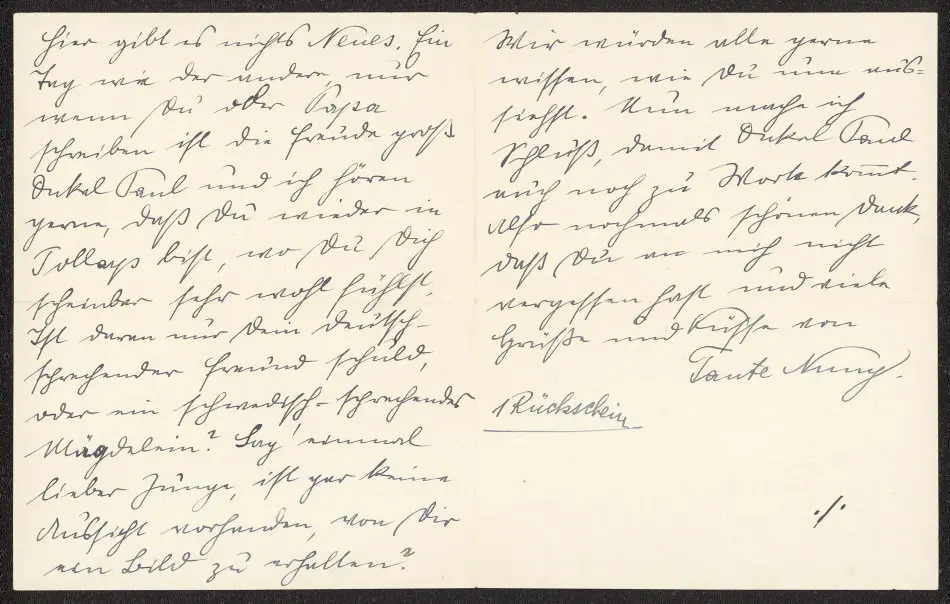 Hier gibt es nichts Neues. Ein
Tag wie der andere, nur
wenn Du oder Papa
schreiben ist die Freude groß.
Onkel Paul und ich hören
gerne, daß Du wieder in
Tollarp bist, wo Du Dich
scheinbar sehr wohl fühlst.
Ist daran nur Dein deutsch-
sprechender Freund schuld,
oder ein schwedisch-sprechendes
Mägdelein? Sag' einmal
lieber Junge, ist gar keine
Aussicht vorhanden, von Dir
ein Bild zu erhalten?
Wir würden alle gerne
wissen, wie Du nun aus-
siehst. Nun mache ich
Schluß, damit Onkel Paul
auch noch zu Worte kommt.
Also nochmals schönen Dank,
daß Du an mich nicht
vergessen hast und viele
Grüße und Küsse von
Tante Nuny.
1 Rückschein
./.